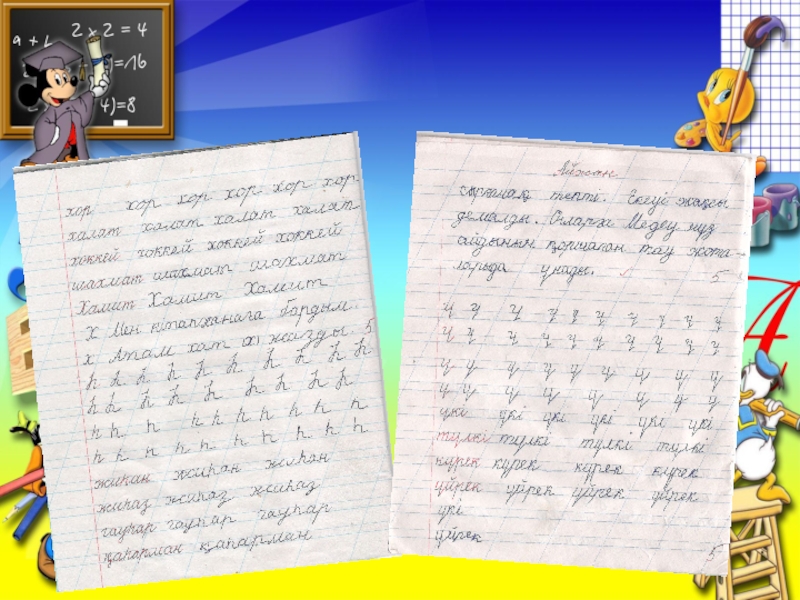 2 x 2 = 4
хор хор хор хор хор хор
халат халат халат халат
хоккей хоккей хоккей хоккей
шахмат шахмат шахмат
Хамит Хамит Хамит
Х Мен кітапханаға бардым.
х Атам хат жазды. 5
һ һ һ һ һ һ һ һ һ һ
һ һ һ һ һ һ һ һ һ
һ һ һ һ һ һ һ һ һ һ
һ һ һ һ һ һ һ һ һ һ
жиһан жиһан жиһан
жиһаз жиһаз жиһаз
гауһар гауһар гауһар
қаһарман қаһарман
Айжан
сырғанақ тепті. Екеуі жақсы
демалды. Оларға Медеу мұз
айдынын қоршаған тау жота-
лары да ұнады. 5
ү ү ү ү ү ү ү ү ү
ү ү ү ү ү ү ү ү ү
ү ү ү ү ү ү ү ү
ү ү ү ү ү ү ү ү
үкі үкі үкі үкі үкі
түлкі түлкі түлкі түлкі
күрек күрек күрек күрек
үйрек үйрек үйрек үйрек
үкі
үйрек 5